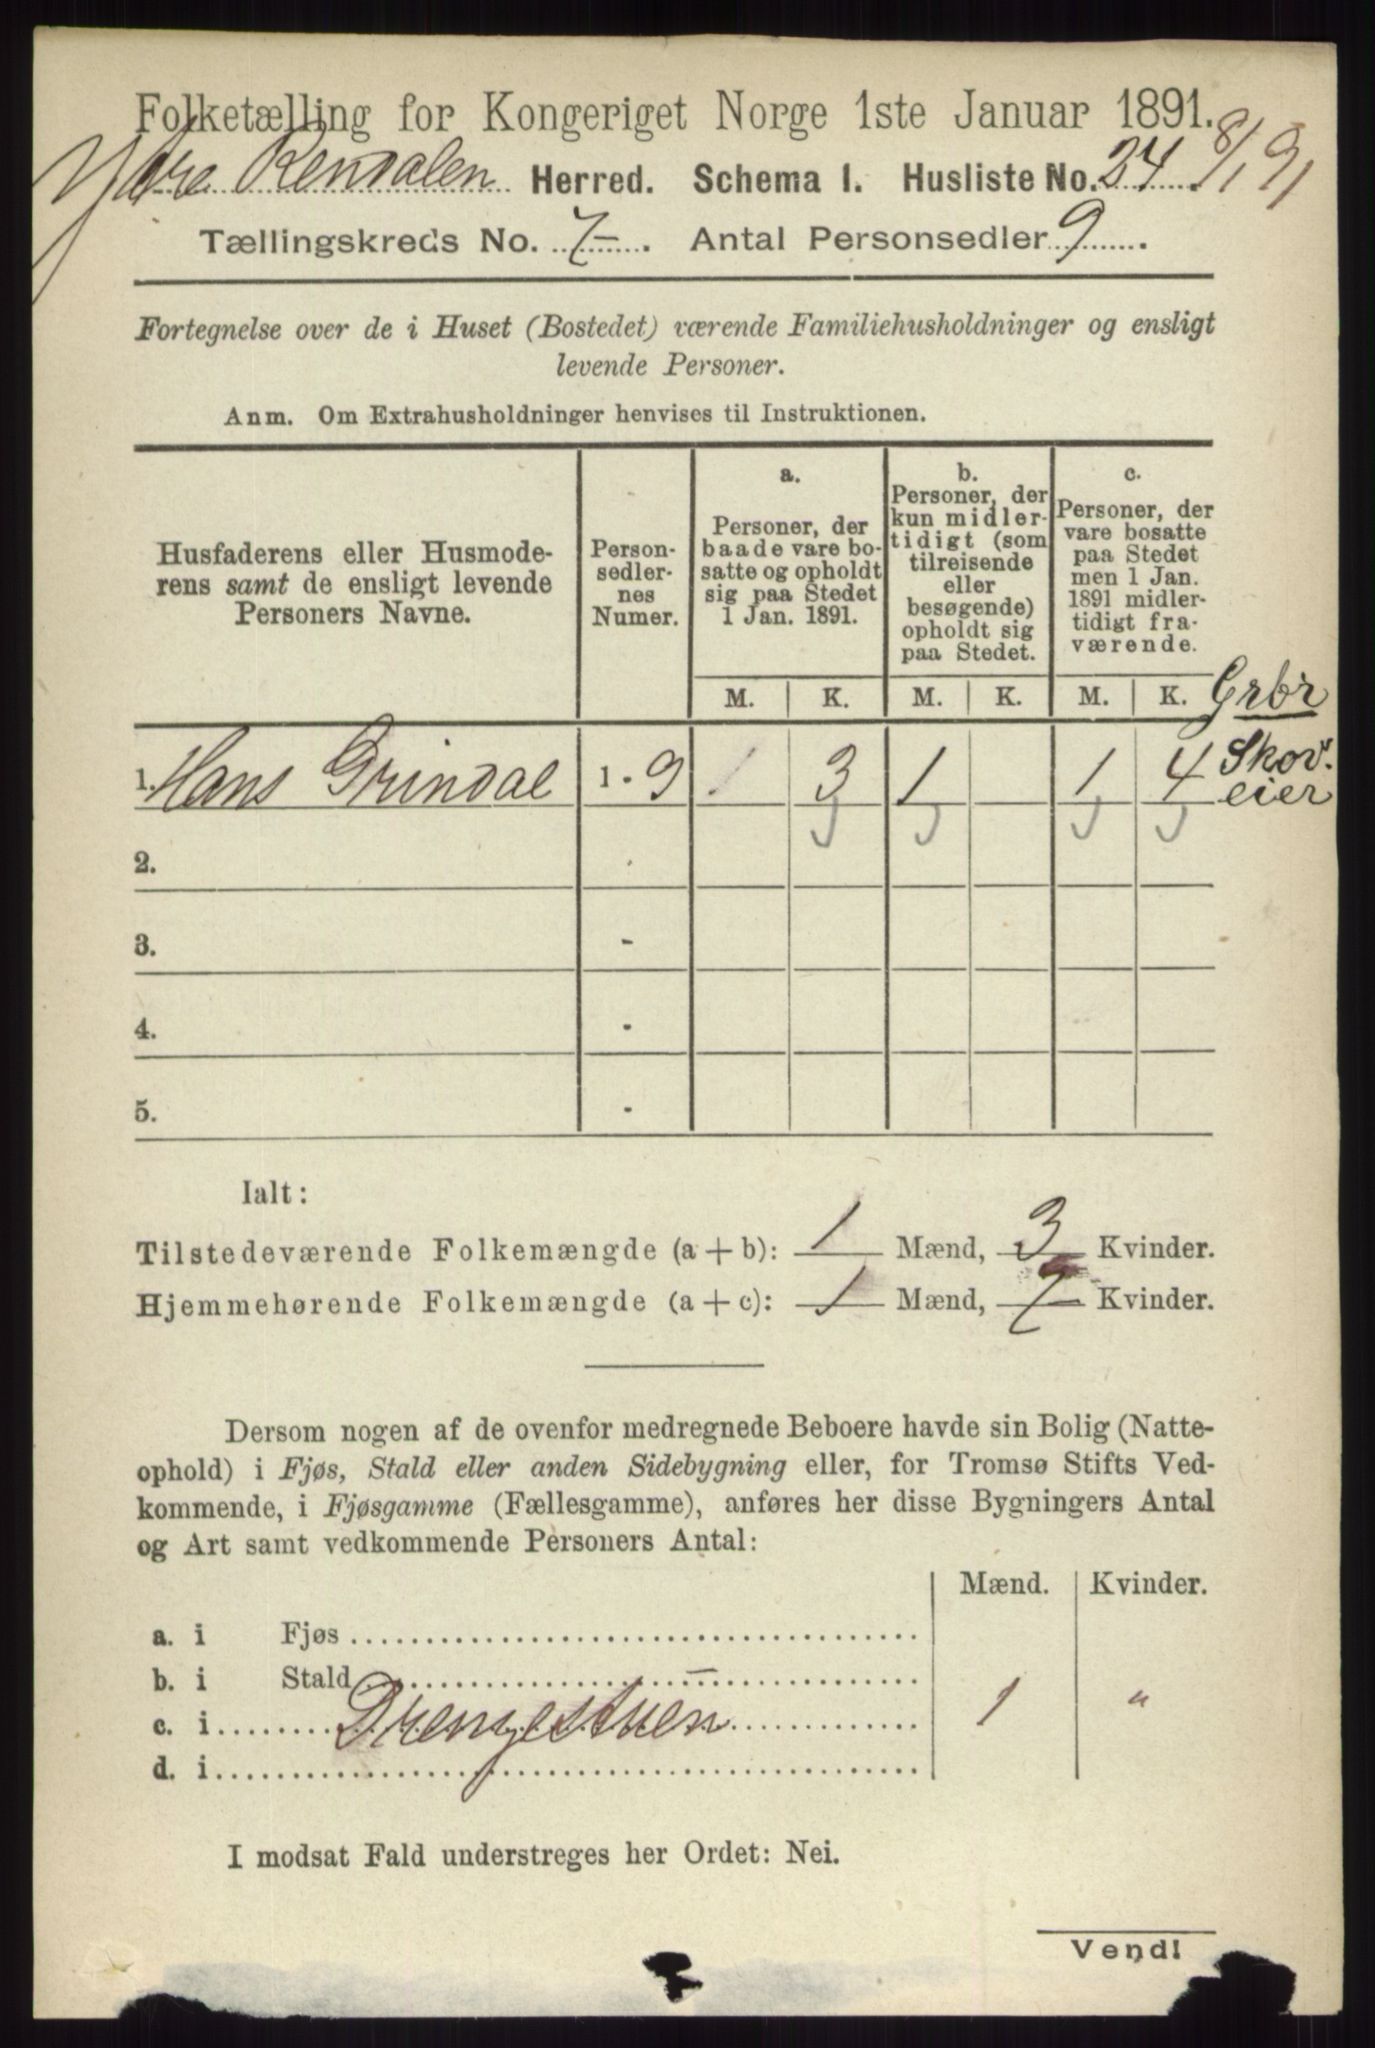 Folketælling for Kongeriget Norge 1ste Januar 1891.
Ydre Rendalen Herred. Schema I. Husliste No. 24. 8/1 91
Tællingskreds No. 7. Antal Personsedler 9.
Fortegnelse over de i Huset (Bostedet) værende Familiehusholdninger og ensligt
levende Personer.
Anm. Om Extrahusholdninger henvises til Instruktionen.
Husfaderens eller Husmode-
rens samt de ensligt levende
Personers Navne.
Person-
sedler-
nes
Numer.
a.
Personer, der
baade vare bo-
satte og opholdt
sig paa Stedet
1 Jan. 1891.
b.
Personer, der
kun midler-
tidigt (som
tilreisende
eller
besøgende)
opholdt sig
paa Stedet.
c.
Personer, der
vare bosatte
paa Stedet
men 1 Jan.
1891 midler-
tidigt fra-
værende.
M. K. M. K. M. K. Grbr
1. Hans Grindal 1 - 9 1 3 1 1 4 Skov-
eier
2. -
3. -
4. -
5. -
Ialt:
Tilstedeværende Folkemængde (a + b): 1 Mænd, 3 Kvinder.
Hjemmehørende Folkemængde (a + c): 1 Mænd, 7 Kvinder.
Dersom nogen af de ovenfor medregnede Beboere havde sin Bolig (Natte-
ophold) i Fjøs, Stald eller anden Sidebygning eller, for Tromsø Stifts Ved-
kommende, i Fjøsgamme (Fællesgamme), anføres her disse Bygningers Antal
og Art samt vedkommende Personers Antal:
Mænd. Kvinder.
a. i Fjøs
b. i Stald
c. i Drengestuen 1 "
d. i
I modsat Fald understreges her Ordet: Nei.
Vend!